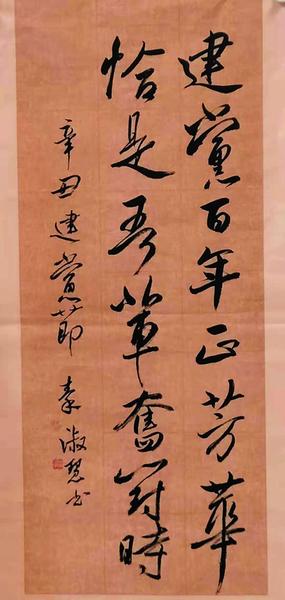 建黨百年正芳華
恰是吾輩奮鬥時
辛丑建黨節 秦淑慧书